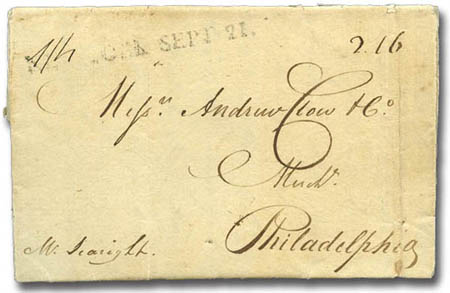 1/4 YORK SEPT 21. 2.16
Messrs Andrew Clow & Co
Merchts
Philadelphia
Mr Searight.